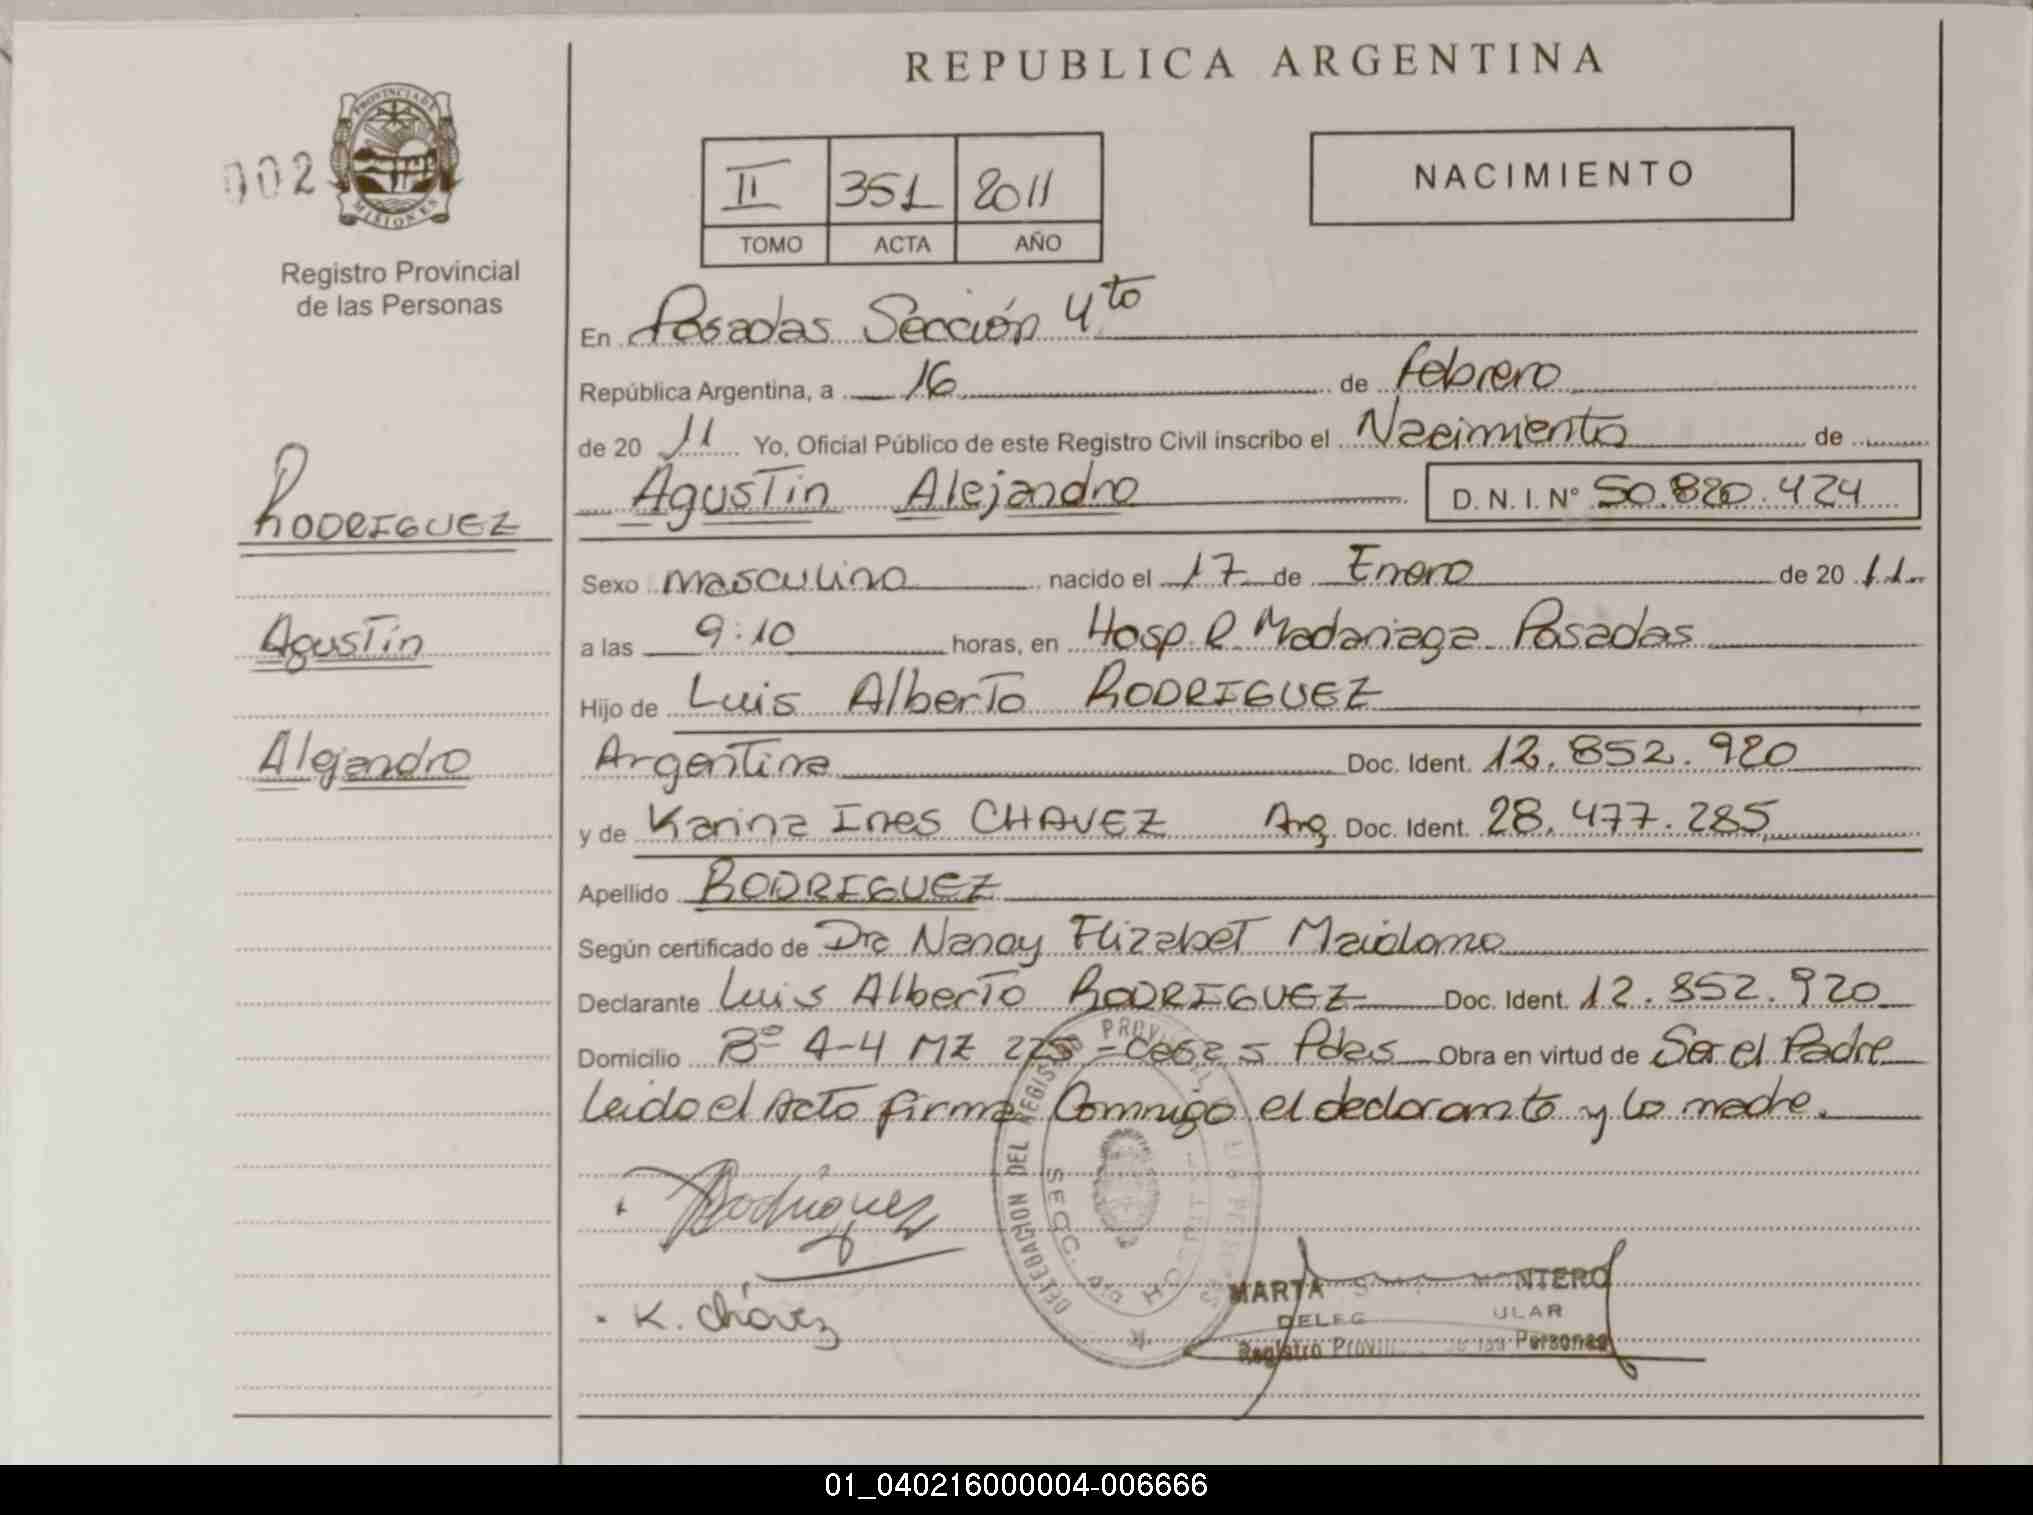 REPUBLICA ARGENTINA
002
PROVINCIA DE
MISIONES
Registro Provincial
de las Personas
II 351 2011
TOMO ACTA AÑO
NACIMIENTO
En Posadas Sección 4to
República Argentina, a 16 de febrero
de 20 11 Yo, Oficial Público de este Registro Civil inscribo el Nacimiento de
Agustin Alejandro D. N. I. N° 50.820.424
RODRIGUEZ
Agustin
Alejandro
Sexo masculino nacido el 17 de Enero de 20 11
a las 9:10 horas, en Hosp. R. Madariaga Posadas
Hijo de Luis Alberto RODRIGUEZ
Argentina Doc. Ident. 12.852.920
y de Karina Ines CHAVEZ Arg Doc. Ident. 28.477.285
Apellido RODRIGUEZ
Según certificado de Dra Nancy Elizabet Maidana
Declarante Luis Alberto RODRIGUEZ Doc. Ident. 12.852.920
Domicilio Bº A-4 MZ 225 - Casa 5 Pdas Obra en virtud de Ser el Padre
Leido el Acto firma Conmigo el declarante y la madre.
Rodriguez
K. Chávez
DELEGACION DEL REGISTRO PROVINCIAL
SECC. 4to
MARTA
Registro Personas
01_040216000004-006666